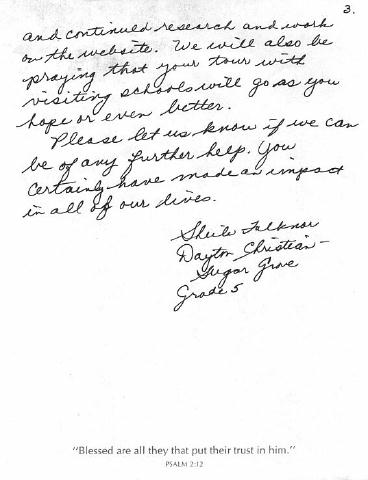 3.
and continued research and work
on the website. We will also be
praying that your tour with
visiting schools will go as you
hope or even better.
Please let us know if we can
be of any further help. You
certainly have made an impact
in all of our lives.
Sheila Falknor
Dayton Christian -
Sugar Grove
Grade 5
"Blessed are all they that put their trust in him."
PSALM 2:12